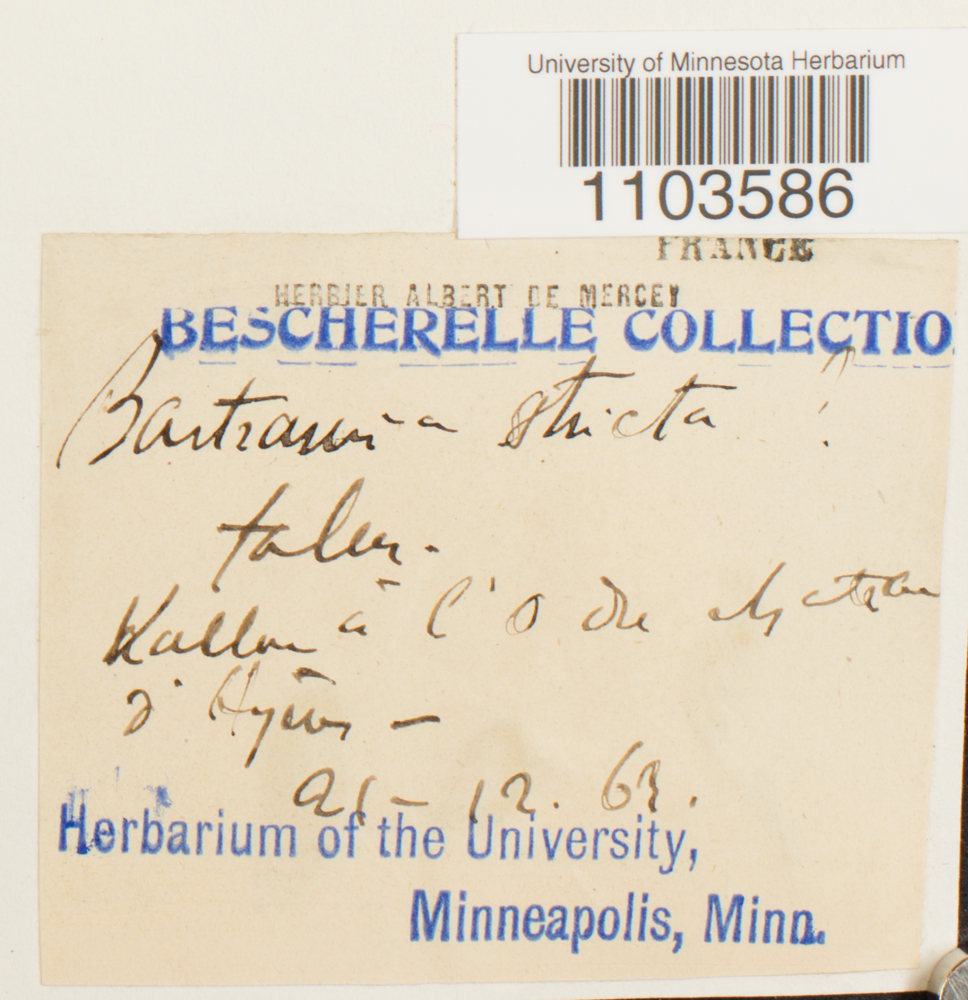 University of Minnesota Herbarium
1103586
FRANCE
HERBIER ALBERT DE MERCEY
BESCHERELLE COLLECTIO
Bartramia stricta !
à l'O de
d'Hyères –
21 – 12. 63.
Herbarium of the University,
Minneapolis, Minn.